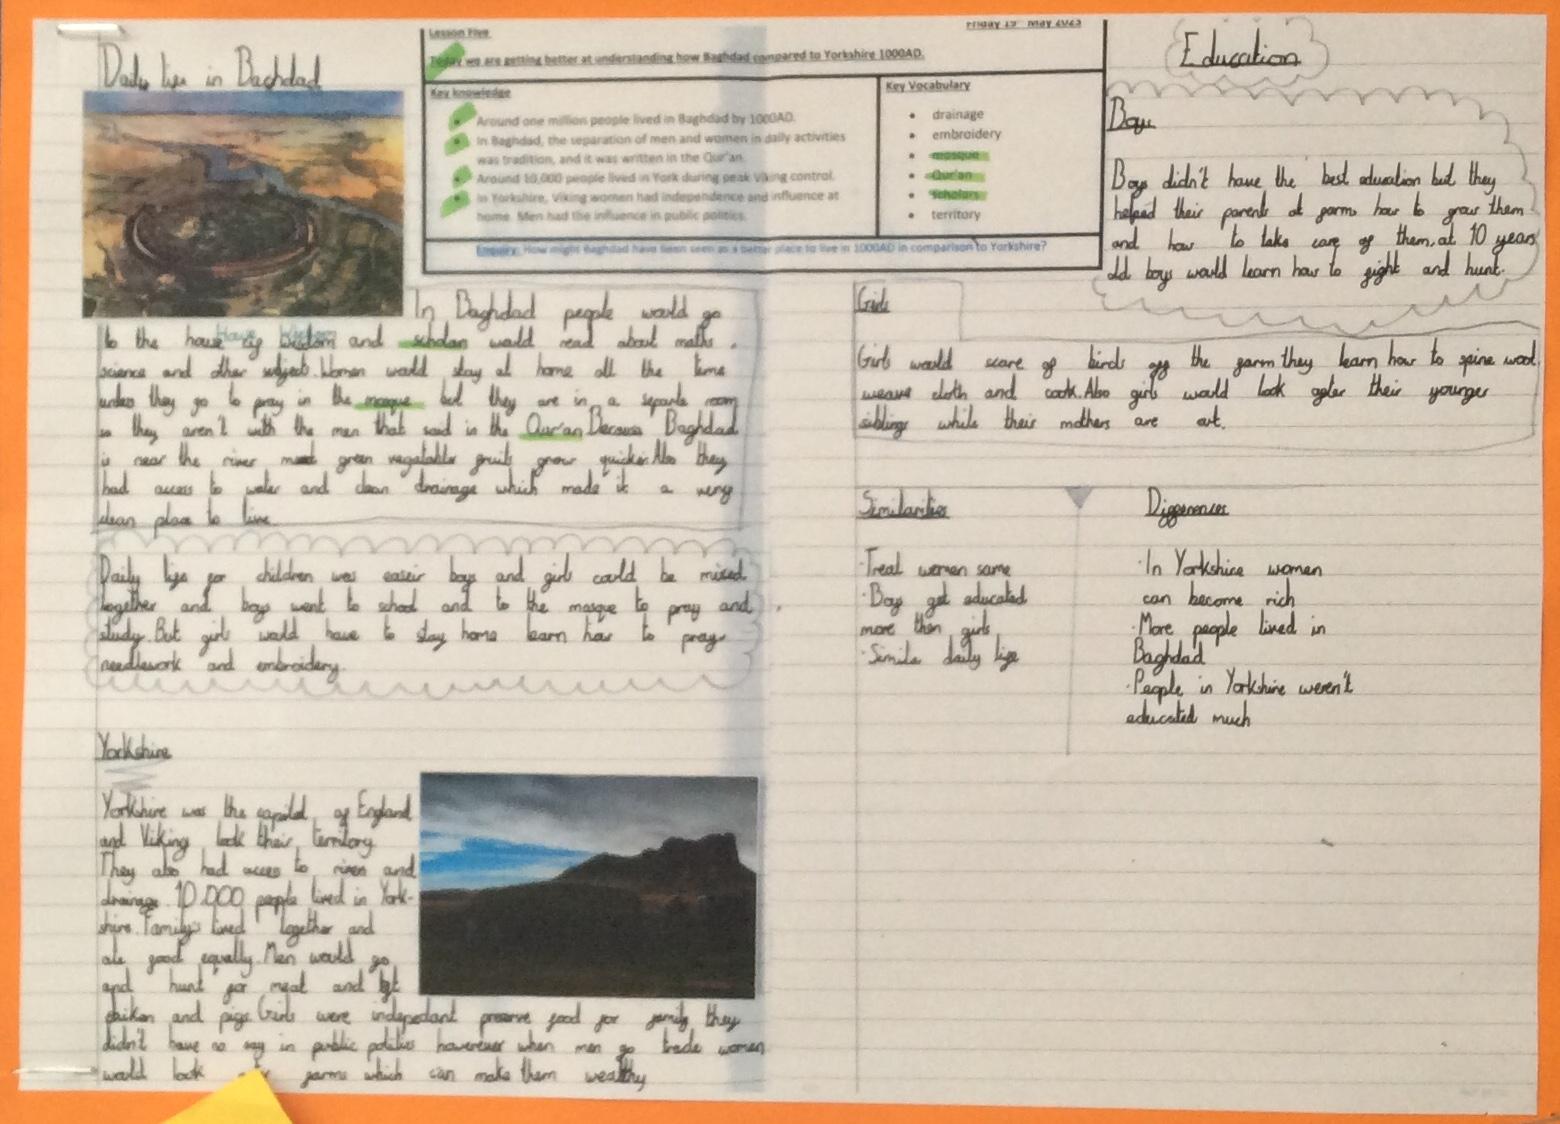 Daily life in Baghdad
Lesson Five
Friday 19 May 2023
Today we are getting better at understanding how Baghdad compared to Yorkshire 1000AD.
Key knowledge
Around one million people lived in Baghdad by 1000AD.
In Baghdad, the separation of men and women in daily activities
was tradition, and it was written in the Qur'an.
Around 10,000 people lived in York during peak Viking control.
In Yorkshire, Viking women had independence and influence at
home. Men had the influence in public politics.
Key Vocabulary
drainage
embroidery
mosque
Qur'an
scholars
territory
Enquiry: How might Baghdad have been seen as a better place to live in 1000AD in comparison to Yorkshire?
In Baghdad people would go
to the house of wisdom and scholars would read about maths,
science and other subjects. Women would stay at home all the time
unless they go to pray in the mosque but they are in a separte room
so they aren't with the men that said in the Qur'an. Because Baghdad
is near the river most green vegatables fruits grow quicker. Also they
had access to water and clean drainage which made it a very
clean place to live.
Daily life for children was easeir boys and girls could be mixed
together and boys went to school and to the mosque to pray and
study. But girls would have to stay home learn how to pray
needlework and embroidery.
Yorkshire
Yorkshire was the capital of England
and Vikings took their territory.
They also had acces to rivers and
drainage. 10.000 people lived in York-
shire. Family's lived together and
ate food equally. Men would go
and hunt for meat and
chiken and pigs. Girls were indepedant preserve food for family they
didn't have no say in public politics howerever when men go trade women
would look farms which can make them wealthy
Education
Boys
Boys didn't have the best education but they
helped their parents at farms how to grow them
and how to take care of them. at 10 years
old boys would learn how to fight and hunt.
Girls
Girls would scare of birds off the farm they learn how to spine wool
weave cloth and cook. Also girls would look after their younger
siblings while their mothers are out.
Similarities
·Treat women same
·Boys get educated
more then girls
·Simila daily life
Differences
·In Yorkshire women
can become rich
·More people lived in
Baghdad
·People in Yorkshire weren't
educated much